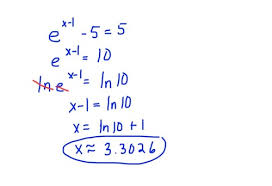 e^(x-1) - 5 = 5
e^(x-1) = 10
ln e^(x-1) = ln 10
x-1 = ln 10
x = ln 10 + 1
x ≈ 3.3026